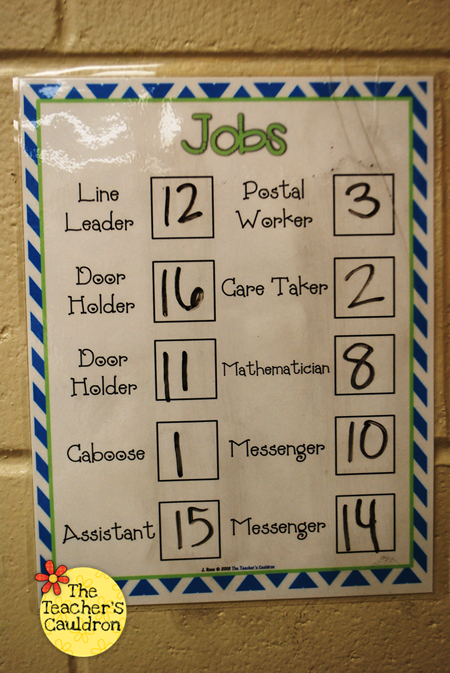 Jobs
Line
Leader
12
Postal
Worker
3
Door
Holder
16
Care Taker
2
Door
Holder
11
Mathematician
8
Caboose
1
Messenger
10
Assistant
15
Messenger
14
© 2009 The Teacher's Cauldron
The
Teacher's
Cauldron